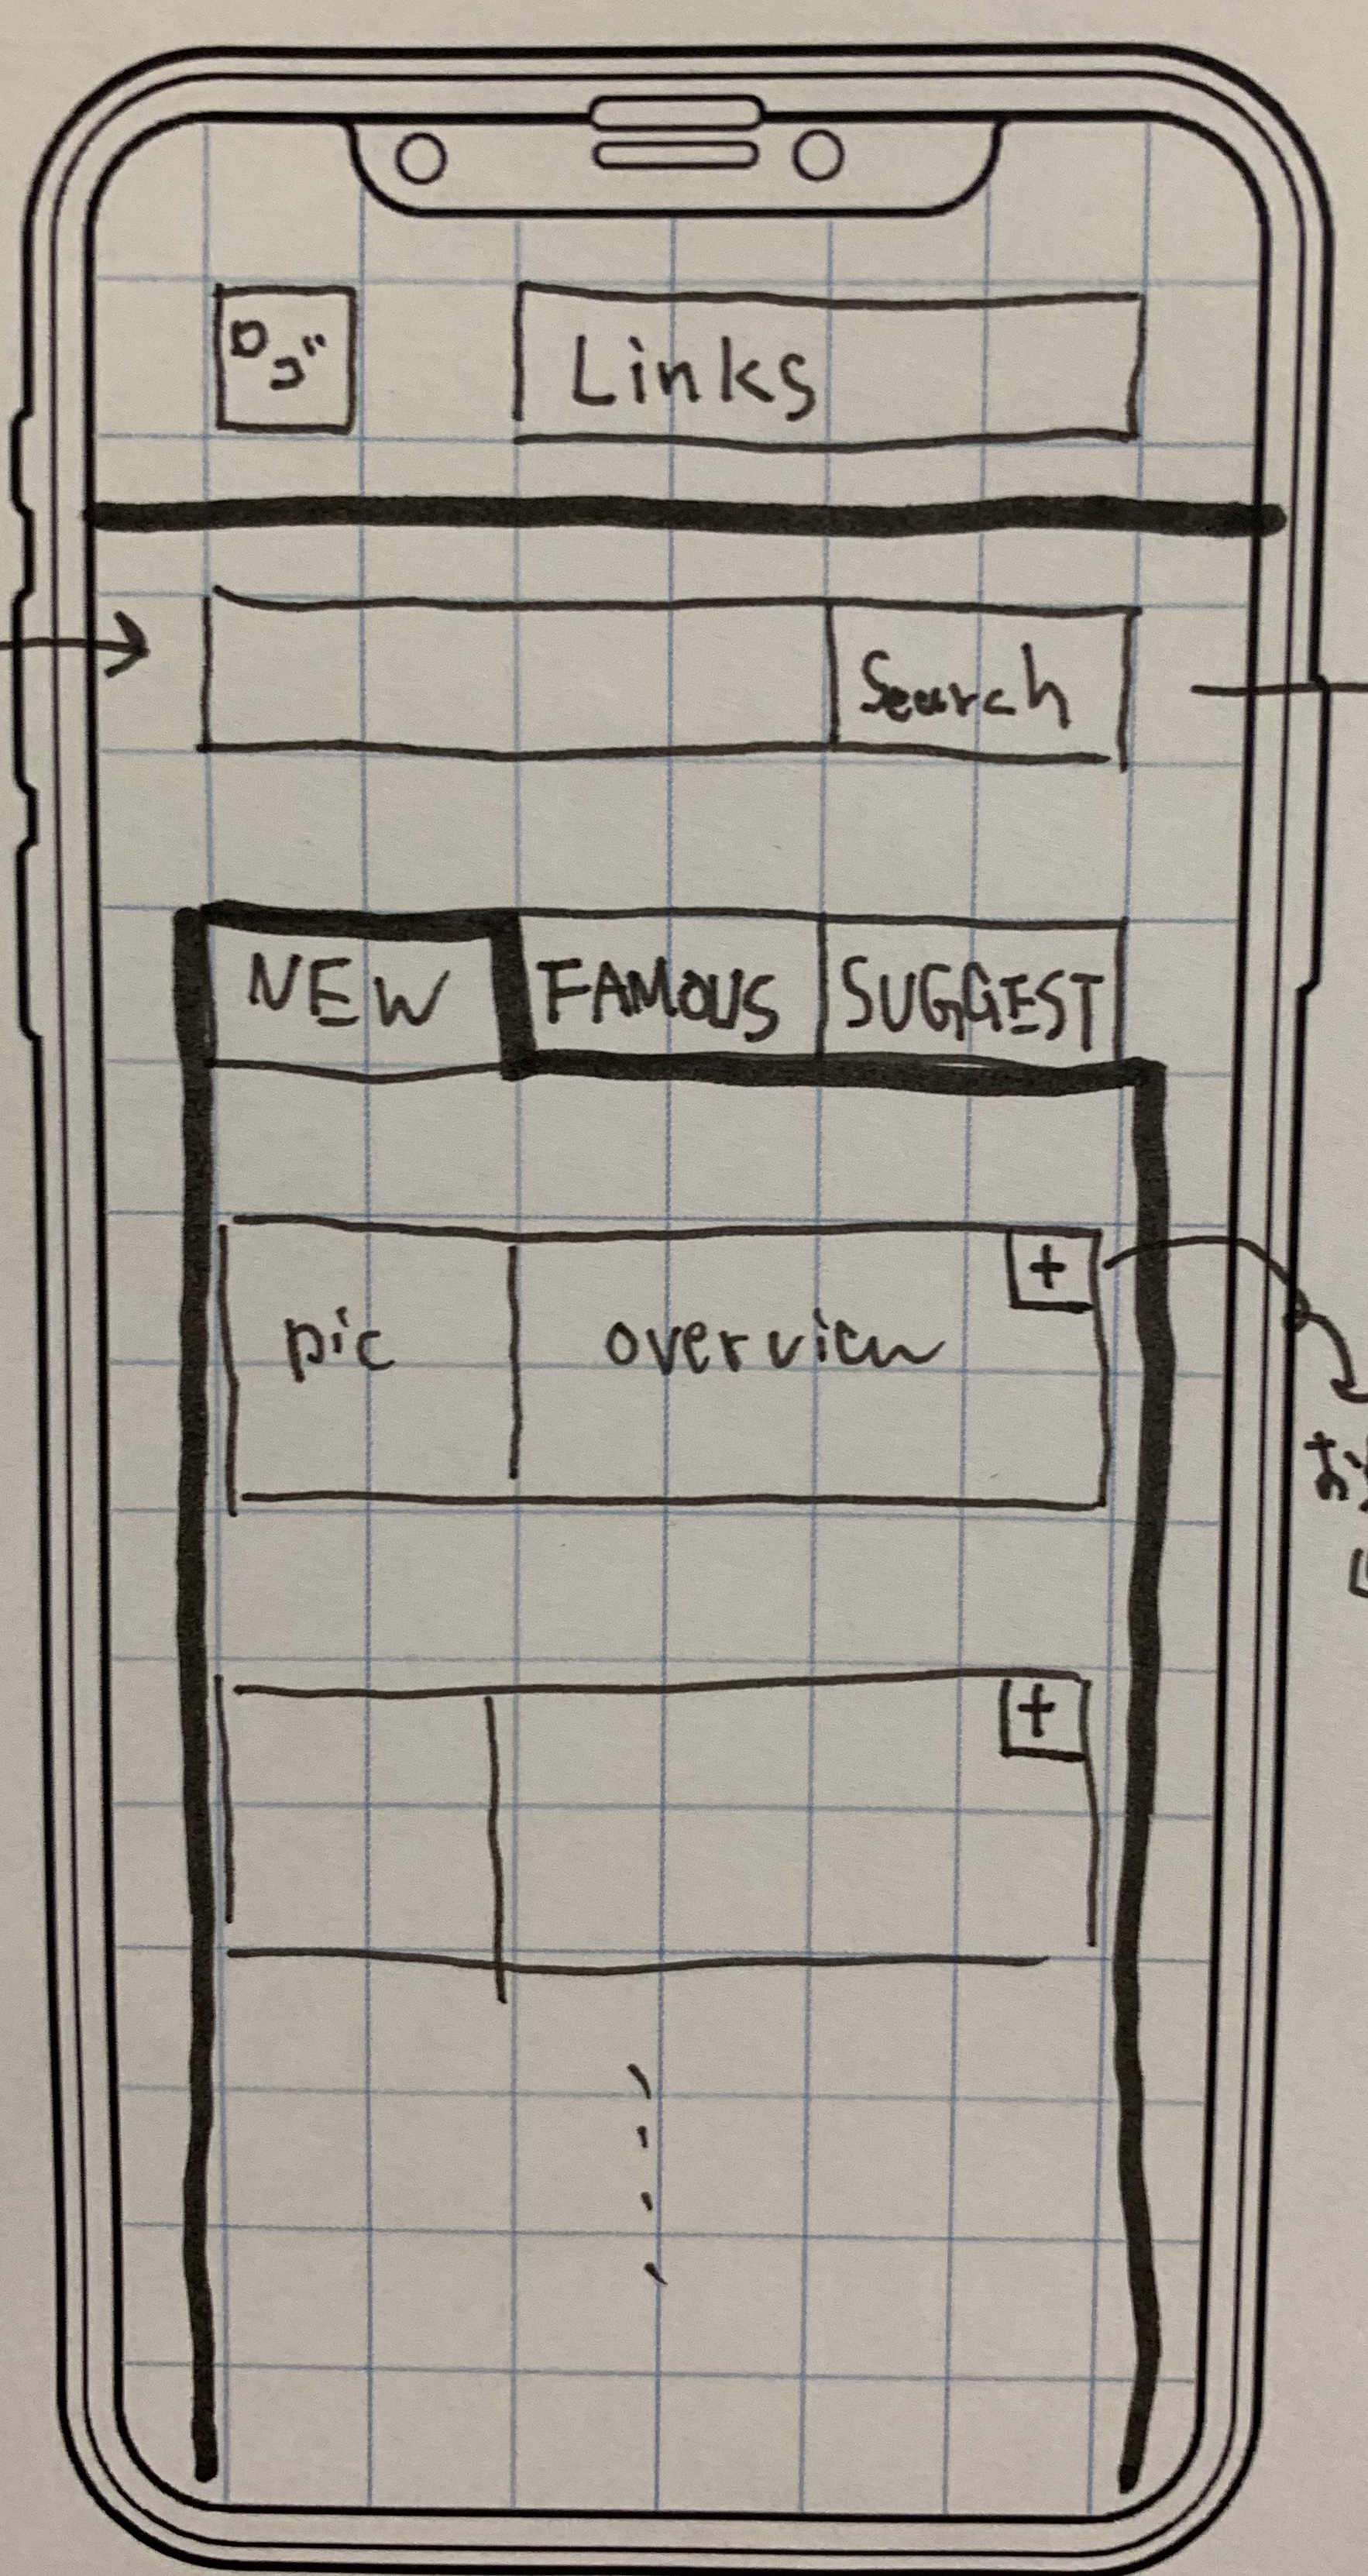 ロゴ
Links
Search
NEW FAMOUS SUGGEST
+
pic overview
+